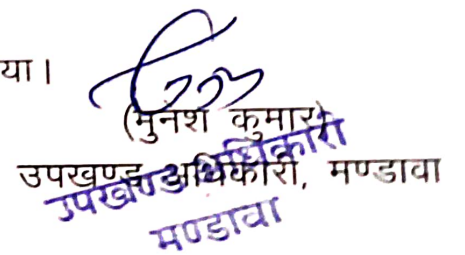 या।
(मुनेश कुमार)
उपखण्ड अधिकारी, मण्डावा
उपखण्ड अधिकारी
मण्डावा